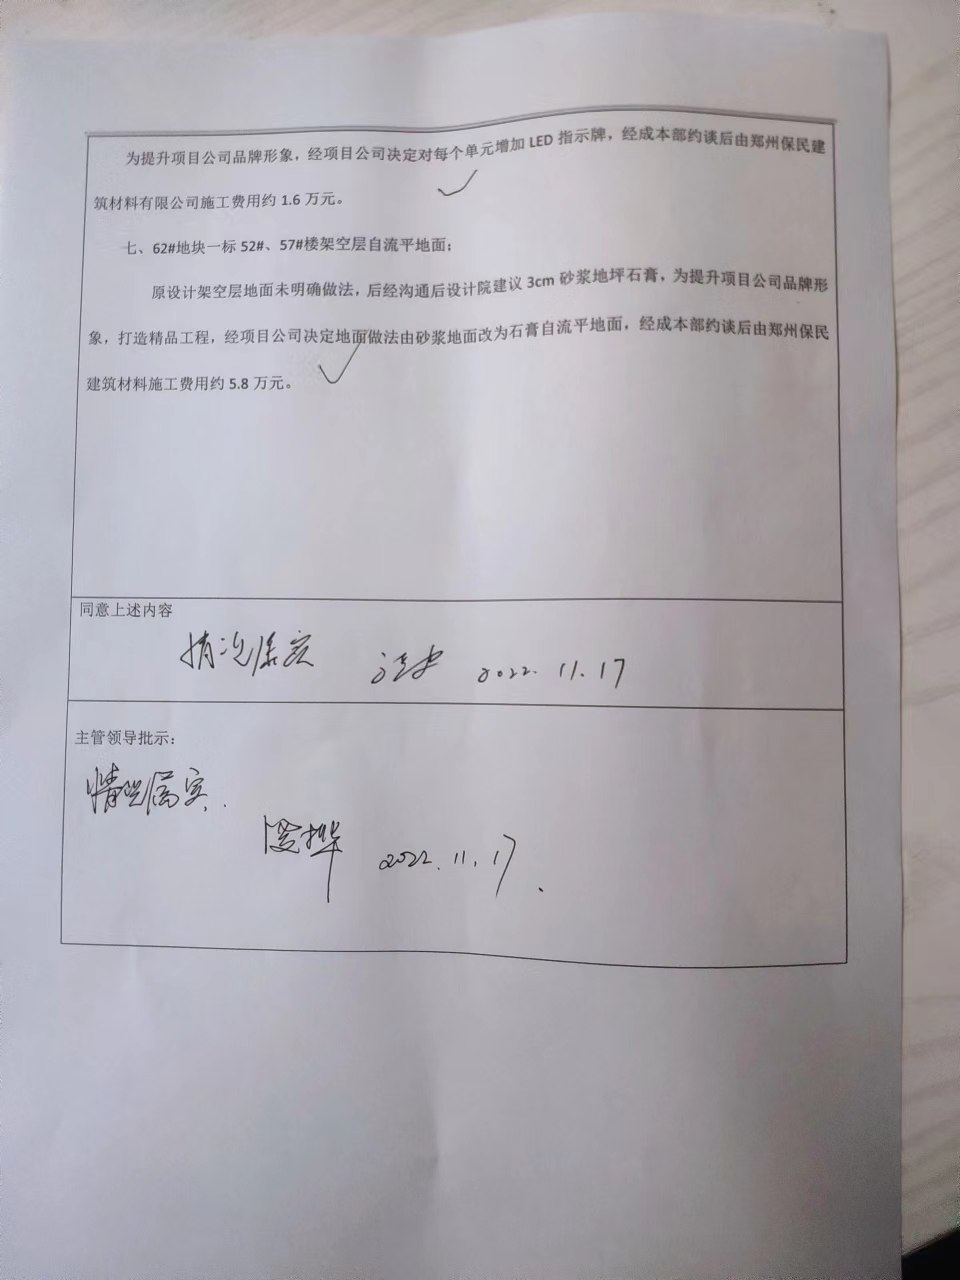 为提升项目公司品牌形象，经项目公司决定对每个单元增加 LED 指示牌，经成本部约谈后由郑州保民建
筑材料有限公司施工费用约 1.6 万元。
七、62#地块一标 52#、57#楼架空层自流平地面；
原设计架空层地面未明确做法，后经沟通后设计院建议 3cm 砂浆地坪石膏，为提升项目公司品牌形
象，打造精品工程，经项目公司决定地面做法由砂浆地面改为石膏自流平地面，经成本部约谈后由郑州保民
建筑材料施工费用约 5.8 万元。
同意上述内容
情况属实 2022.11.17
主管领导批示：
情况属实.
2022.11.17.